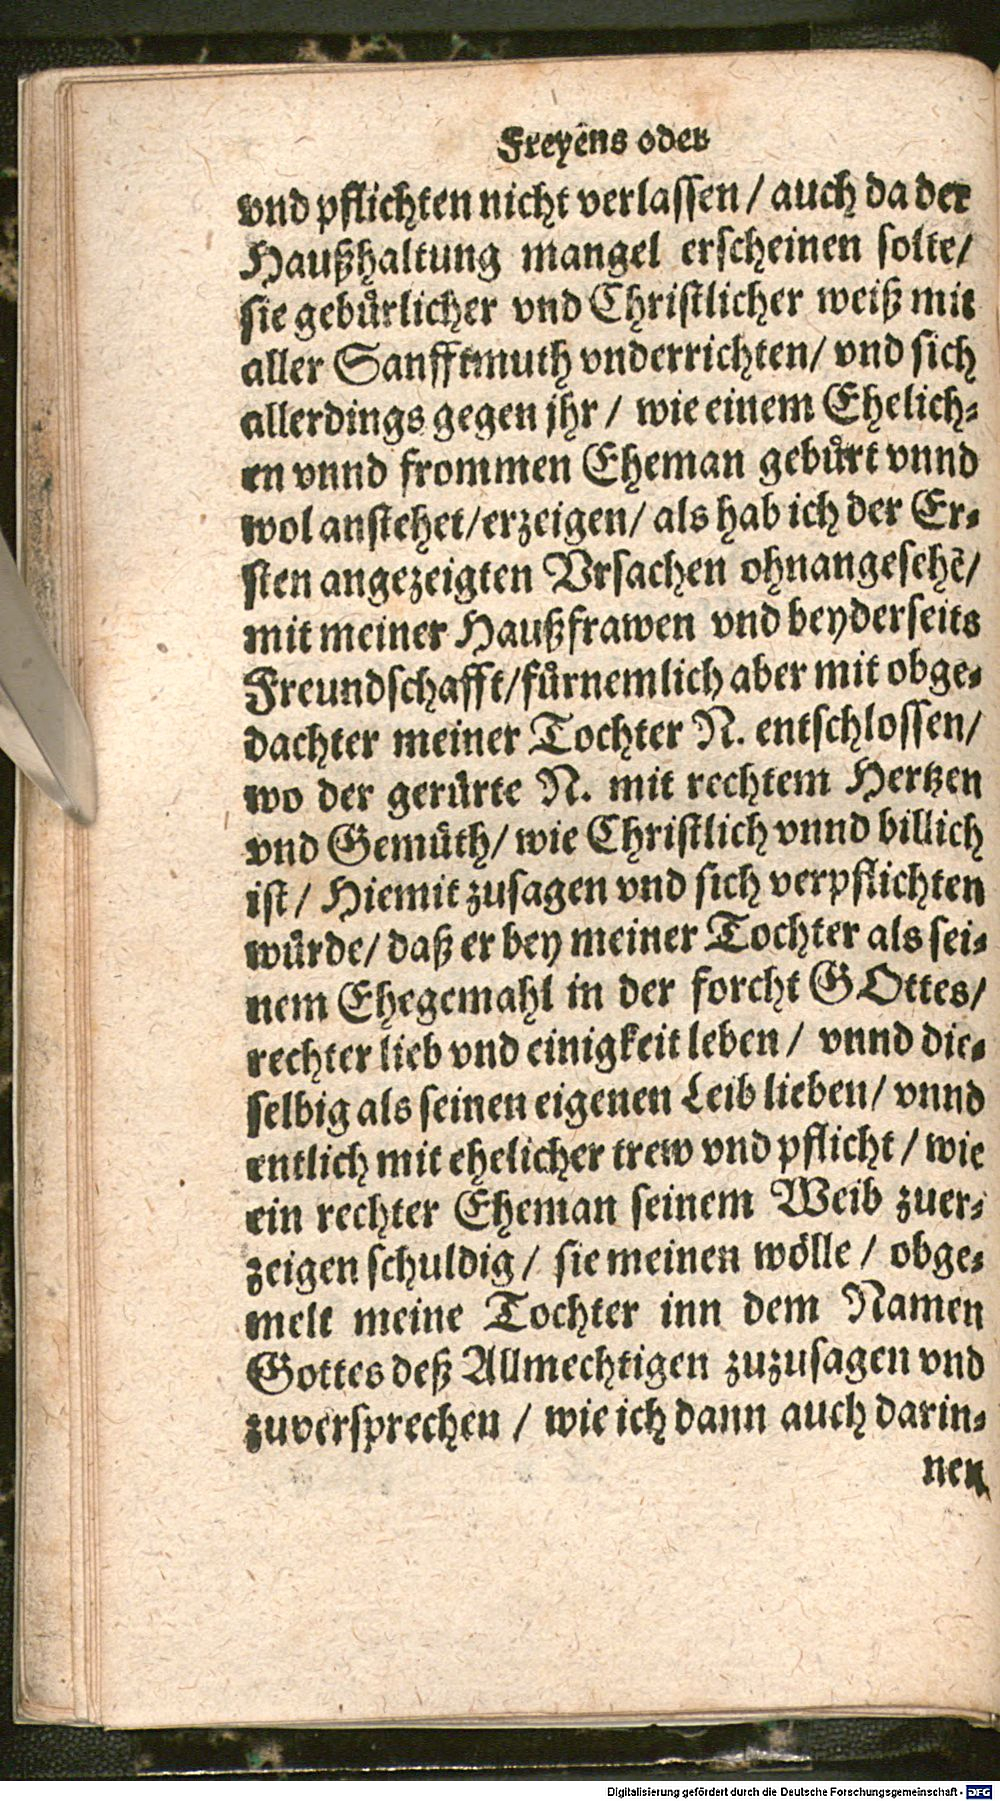 Freyens oder
vnd pflichten nicht verlassen / auch da der
Haußhaltung mangel erscheinen solte/
sie gebuͤrlicher vnd Christlicher weiß mit
aller Sanfftmuth vnderrichten/ vnd sich
allerdings gegen jhr / wie einem Ehelich⸗
en vnnd frommen Eheman gebuͤrt vnnd
wol anstehet/erzeigen/ als hab ich der Er⸗
sten angezeigten Vrsachen ohnangesehẽ/
mit meiner Haußfrawen vnd beyderseits
Freundschafft/fuͤrnemlich aber mit obge⸗
dachter meiner Tochter N. entschlossen/
wo der geruͤrte N. mit rechtem Hertzen
vnd Gemuͤth/ wie Christlich vnnd billich
ist / Hiemit zusagen vnd sich verpflichten
wuͤrde/ daß er bey meiner Tochter als sei⸗
nem Ehegemahl in der forcht GOttes/
rechter lieb vnd einigkeit leben / vnnd die⸗
selbig als seinen eigenen Leib lieben/ vnnd
entlich mit ehelicher trew vnd pflicht / wie
ein rechter Eheman seinem Weib zuer⸗
zeigen schuldig / sie meinen woͤlle / obge⸗
melt meine Tochter inn dem Namen
Gottes deß Allmechtigen zuzusagen vnd
zuversprechen / wie ich dann auch darin⸗
nen
Digitalisierung gefördert durch die Deutsche Forschungsgemeinschaft - DFG